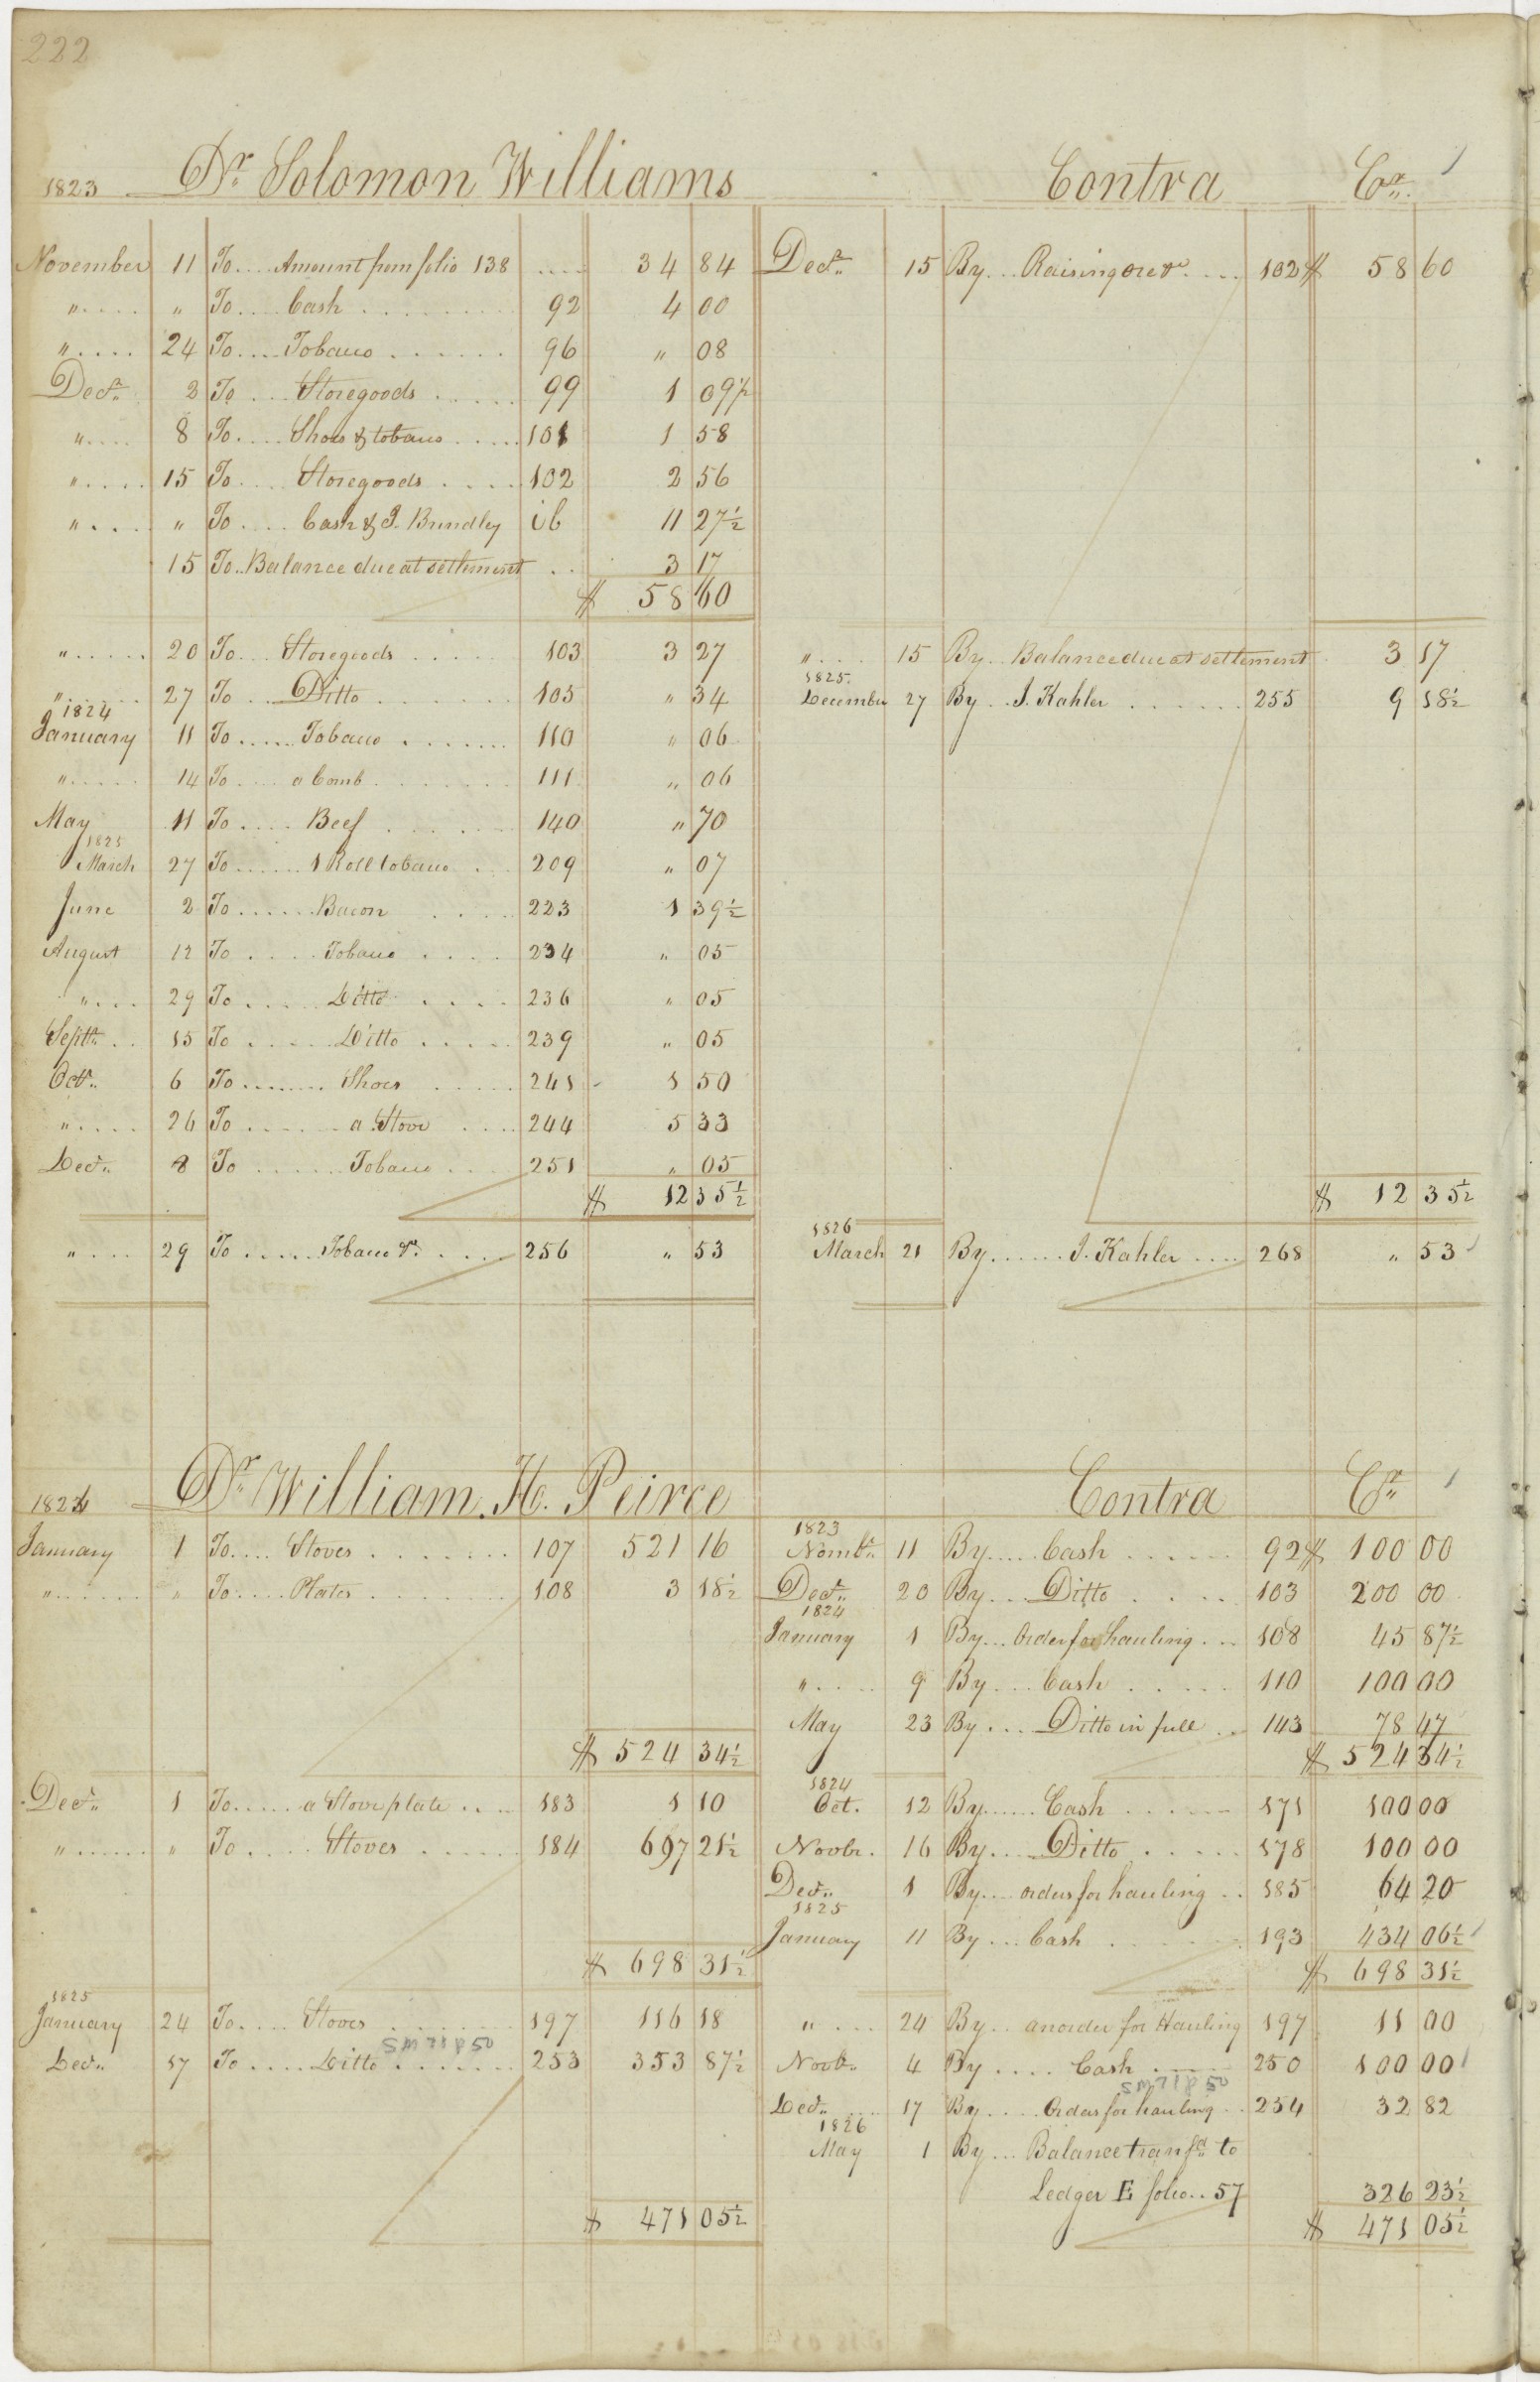 222
1823 Dr. Solomon Williams
November 11 To .... Amount from folio 138 .... 34 84
" .... " To .... Cash ........ 92 4 00
" .... 24 To .... Tobacco ...... 96 " 08
Decr. 2 To .... Storegoods ..... 99 1 09½
" .... 8 To .... Shoes & tobacco ..... 101 1 58
" .... 15 To .... Storegoods .... 102 2 56
" .... " To .... Cash & J. Brindley ib 11 27½
15 To .. Balance due at settlement .. 3 17
$ 58 60
" ..... 20 To ... Storegoods ..... 103 3 27
" ..... 27 To .. Ditto ....... 105 " 34
1824
January 11 To ..... Tobacco ....... 110 " 06
" ..... 14 To .... a Comb ....... 111 " 06
May 11 To .... Beef ...... 140 " 70
1825
March 27 To ...... 1 Roll tobacco ... 209 " 07
June 2 To ...... Bacon .... 223 1 39½
August 12 To ..... Tobacco .... 234 " 05
" ... 29 To ..... Ditto .... 236 " 05
Septr. .. 15 To ..... Ditto ..... 239 " 05
Octr. 6 To ....... Shoes ..... 241 - 1 50
" .... 26 To ...... a Stove .... 244 5 33
Decr. 8 To ...... Tobacco ... 251 " 05
$ 12 35½
" .... 29 To ..... Tobacco &c. .... 256 " 53
Contra Cr.
Decr. 15 By ... Raising ore &c .... 102 $ 58 60
" .... 15 By .. Balance due at settlement 3 17
1825
December 27 By .. J. Kahler ...... 255 9 18½
$ 12 35½
1826
March 21 By ...... J. Kahler .... 268 " 53
1824 Dr. William. H. Peirce
January 1 To .... Stoves ....... 107 521 16
" ...... " To .... Plates ........ 108 3 18½
$ 524 34½
Decr. 1 To ..... a Stove plate .... 183 1 10
" ...... " To .... Stoves ...... 184 697 21½
$ 698 31½
1825
January 24 To .... Stoves ....... 197 116 18
Decr. 17 To .... Ditto ....... 253 353 87½
$ 471 05½
Contra Cr.
1823
Nombr. 11 By ..... Cash ...... 92 $ 100 00
Decr. 20 By ... Ditto .... 103 200 00
1824
January 1 By ... Order for hauling ... 108 45 87½
" .... 9 By ... Cash ..... 110 100 00
May 23 By ... Ditto in full .. 143 78 47
$ 524 34½
1824
Oct. 12 By ...... Cash ...... 171 100 00
Novbr. 16 By .... Ditto ..... 178 100 00
Decr. 1 By .... orders for hauling .. 185 64 20
1825
January 11 By ... Cash ...... 193 434 06½
$ 698 31½
" ... 24 By .. an order for Hauling 197 11 00
Novbr. 4 By .... Cash ..... 250 100 00
Decr. .... 17 By .... Orders for hauling .. 254 32 82
1826
May 1 By ... Balance transfd. to
Ledger E folio .. 57 326 23½
$ 471 05½